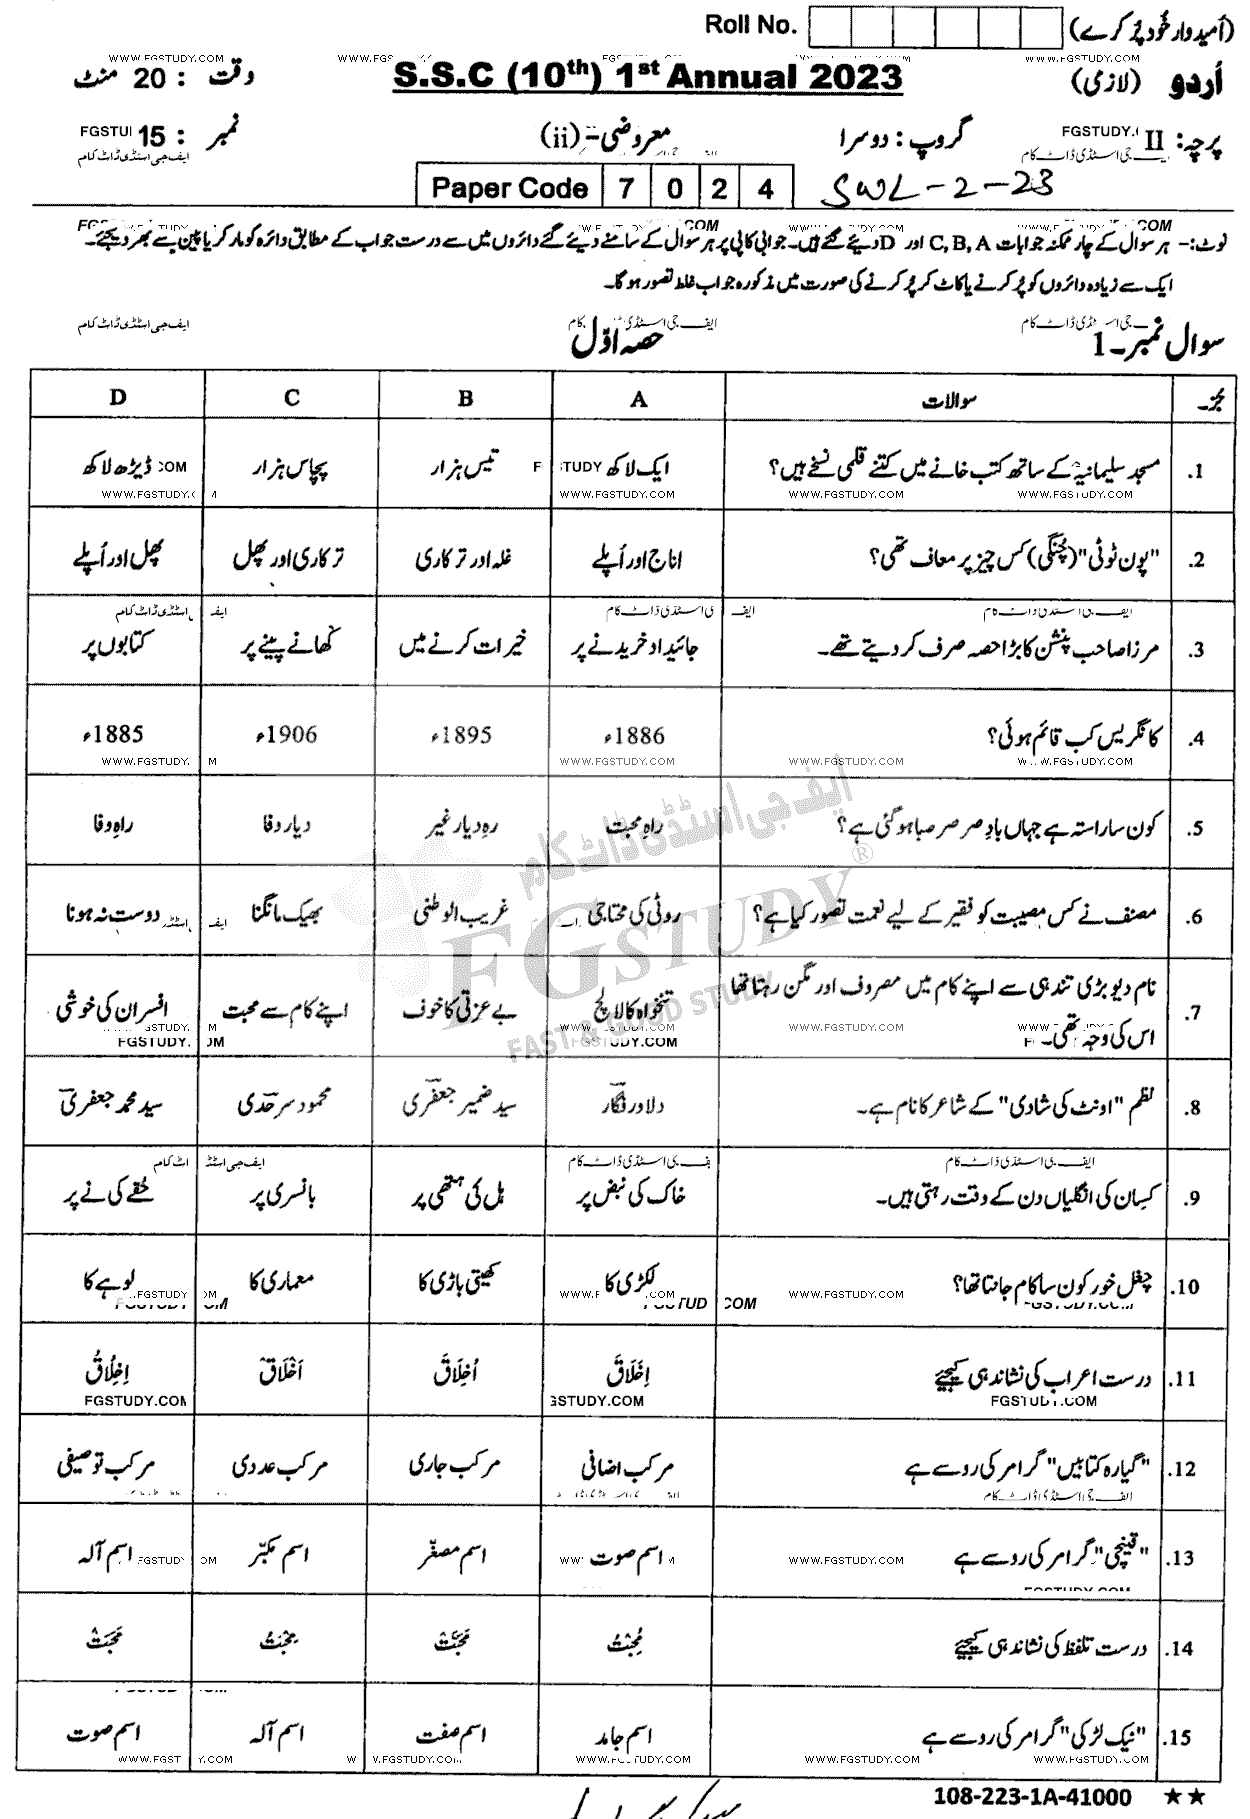 Roll No. (اُمیدوار خود پُر کرے)
اُردو (لازمی) S.S.C (10th) 1st Annual 2023 وقت : 20 منٹ
پرچہ: II گروپ: دوسرا معروضی-(ii) نمبر : 15
Paper Code 7 0 2 4 SWL-2-23
نوٹ:- ہر سوال کے چار ممکنہ جوابات C, B, A اور D دیئے گئے ہیں۔ جوابی کاپی پر ہر سوال کے سامنے دیئے گئے دائروں میں سے درست جواب کے مطابق دائرہ کو مارکر یا پین سے بھر دیجئے۔
ایک سے زیادہ دائروں کو پُر کرنے یا کاٹ کر پُر کرنے کی صورت میں مذکورہ جواب غلط تصور ہو گا۔
سوال نمبر۔1 حصہ اوّل
جُز۔ سوالات A B C D
1. مسجد سلیمانیہ کے ساتھ کتب خانے میں کتنے قلمی نسخے ہیں؟ ایک لاکھ تیس ہزار پچاس ہزار ڈیڑھ لاکھ
2. "پون ٹوٹی" (چُنگی) کس چیز پر معاف تھی؟ اناج اور اُپلے غلہ اور ترکاری ترکاری اور پھل پھل اور اُپلے
3. مرزا صاحب پنشن کا بڑا حصہ صرف کر دیتے تھے۔ جائیداد خریدنے پر خیرات کرنے میں کھانے پینے پر کتابوں پر
4. کانگریس کب قائم ہوئی؟ 1886ء 1895ء 1906ء 1885ء
5. کون سا راستہ ہے جہاں بادِ صر صر صبا ہو گئی ہے؟ راہِ محبت رہِ دیار غیر دیار وفا راہِ وفا
6. مصنف نے کس مصیبت کو فقیر کے لیے نعمت تصور کیا ہے؟ روٹی کی محتاجی غریب الوطنی بھیک مانگنا دوست نہ ہونا
7. نام دیو بڑی تندہی سے اپنے کام میں مصروف اور مگن رہتا تھا
اس کی وجہ تھی۔ تنخواہ کا لالچ بے عزتی کا خوف اپنے کام سے محبت افسران کی خوشی
8. نظم "اونٹ کی شادی" کے شاعر کا نام ہے۔ دلاور نگار سید ضمیر جعفری محمود سرحدی سید محمد جعفری
9. کسان کی انگلیاں دن کے وقت رہتی ہیں۔ خاک کی نبض پر ہل کی ہتھی پر بانسری پر حُقے کی نے پر
10. چغل خور کون سا کام جانتا تھا؟ لکڑی کا کھیتی باڑی کا معماری کا لوہے کا
11. درست اعراب کی نشاندہی کیجیے
12. "گیارہ کتابیں" گرامر کی رو سے ہے مرکب اضافی مرکب جاری مرکب عددی مرکب توصیفی
13. "قینچی" گرامر کی رو سے ہے اسم صوت اسم مصغّر اسم مکبّر اسم آلہ
14. درست تلفظ کی نشاندہی کیجیے
15. "نیک لڑکی" گرامر کی رو سے ہے اسم جامد اسم صفت اسم آلہ اسم صوت
108-223-1A-41000 ★★
ایف جی اسٹڈی ڈاٹ کام
FGSTUDY®
FAST & GOOD STUDY
WWW.FGSTUDY.COM